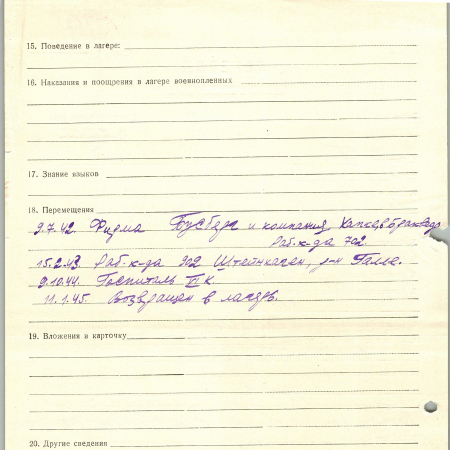 15. Поведение в лагере:
16. Наказания и поощрения в лагере военнопленных
17. Знание языков
18. Перемещения
9.7.42. Фирма Бусберг и компания
Раб. к-да 702
15.2.43 Раб. к-да 902 Штейнхаген, р-н Галле.
9.10.44. Госпиталь VI К.
11.1.45. Возвращен в лагерь.
19. Вложения в карточку
20. Другие сведения